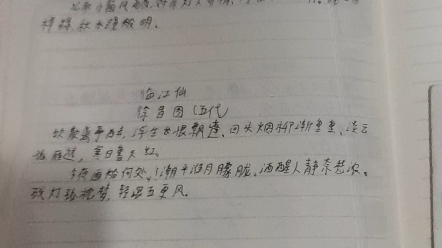 梓稼,秋水澄明。
临江仙
徐昌图(五代)
饮散离亭西去,浮生长恨飘蓬。回头烟柳渐重重。淡云
孤雁远,寒日暮天红。
今夜画船何处?潮平淮月朦胧。酒醒人静奈愁浓。
残灯孤枕梦,轻浪五更风。